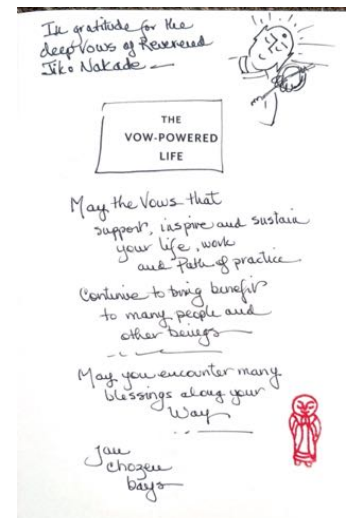 In gratitude for the
deep vows of Reverend
Jiko Nakade —
THE
VOW-POWERED
LIFE
May the Vows that
support, inspire and sustain
your life, work
and Path of practice
Continue to bring benefit
to many people and
other beings
May you encounter many
blessings along your
Way
Jan
Chozen
bays